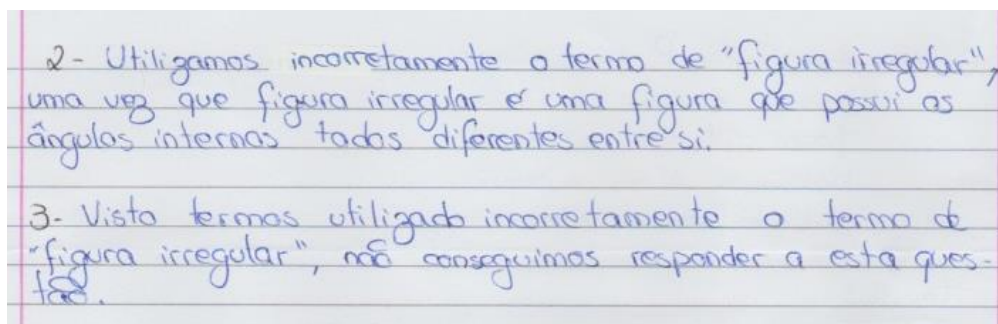 2- Utilizamos incorretamente o termo de "figura irregular",
uma vez que figura irregular é uma figura que possui os
ângulos internos todos diferentes entre si.
3- Visto termos utilizado incorretamente o termo de
"figura irregular", não conseguimos responder a esta ques-
tão.